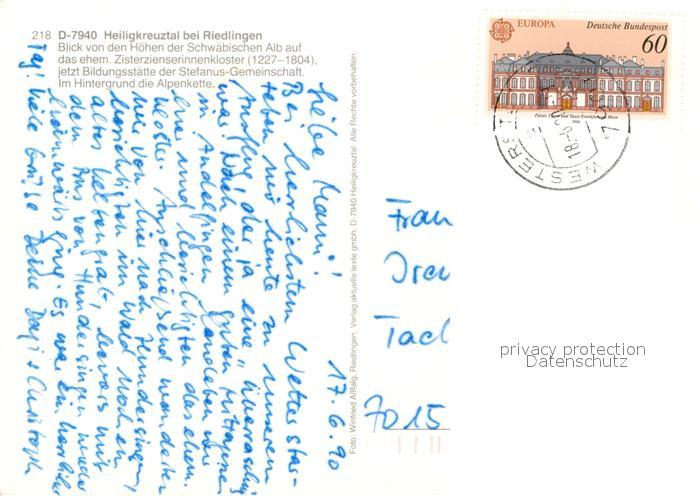 218 D-7940 Heiligkreuztal bei Riedlingen
Blick von den Höhen der Schwäbischen Alb auf
das ehem. Zisterzienserinnenkloster (1227–1804),
jetzt Bildungsstätte der Stefanus-Gemeinschaft.
Im Hintergrund die Alpenkette.
17.6.90
Liebe Mami!
Bei herrlichstem Wetter star-
teten wir heute zu unserem
Ausflug, der ja eine Überraschg
war. Nach einem guten Mittagessen
in Andelfingen
und besichtigten das ehem.
Kloster. Anschließend wanderten
wir von hier nach Hundersingen,
besichtigten im Wald
altes Keltengrab, bevor's mit
dem Bus von Hundersingen wieder
heimwärts ging. Es war ein herrlicher
Tag! Viele Grüße Deine & Christoph
Foto: Winfried Aßfalg, Riedlingen. Verlag aktuelle texte gmbh, D-7940 Heiligkreuztal. Alle Rechte vorbehalten.
EUROPA Deutsche Bundespost
60
Palais Thurn und Taxis Frankfurt am Main
1990
WESTER
18.-6
Frau
7015
privacy protection
Datenschutz